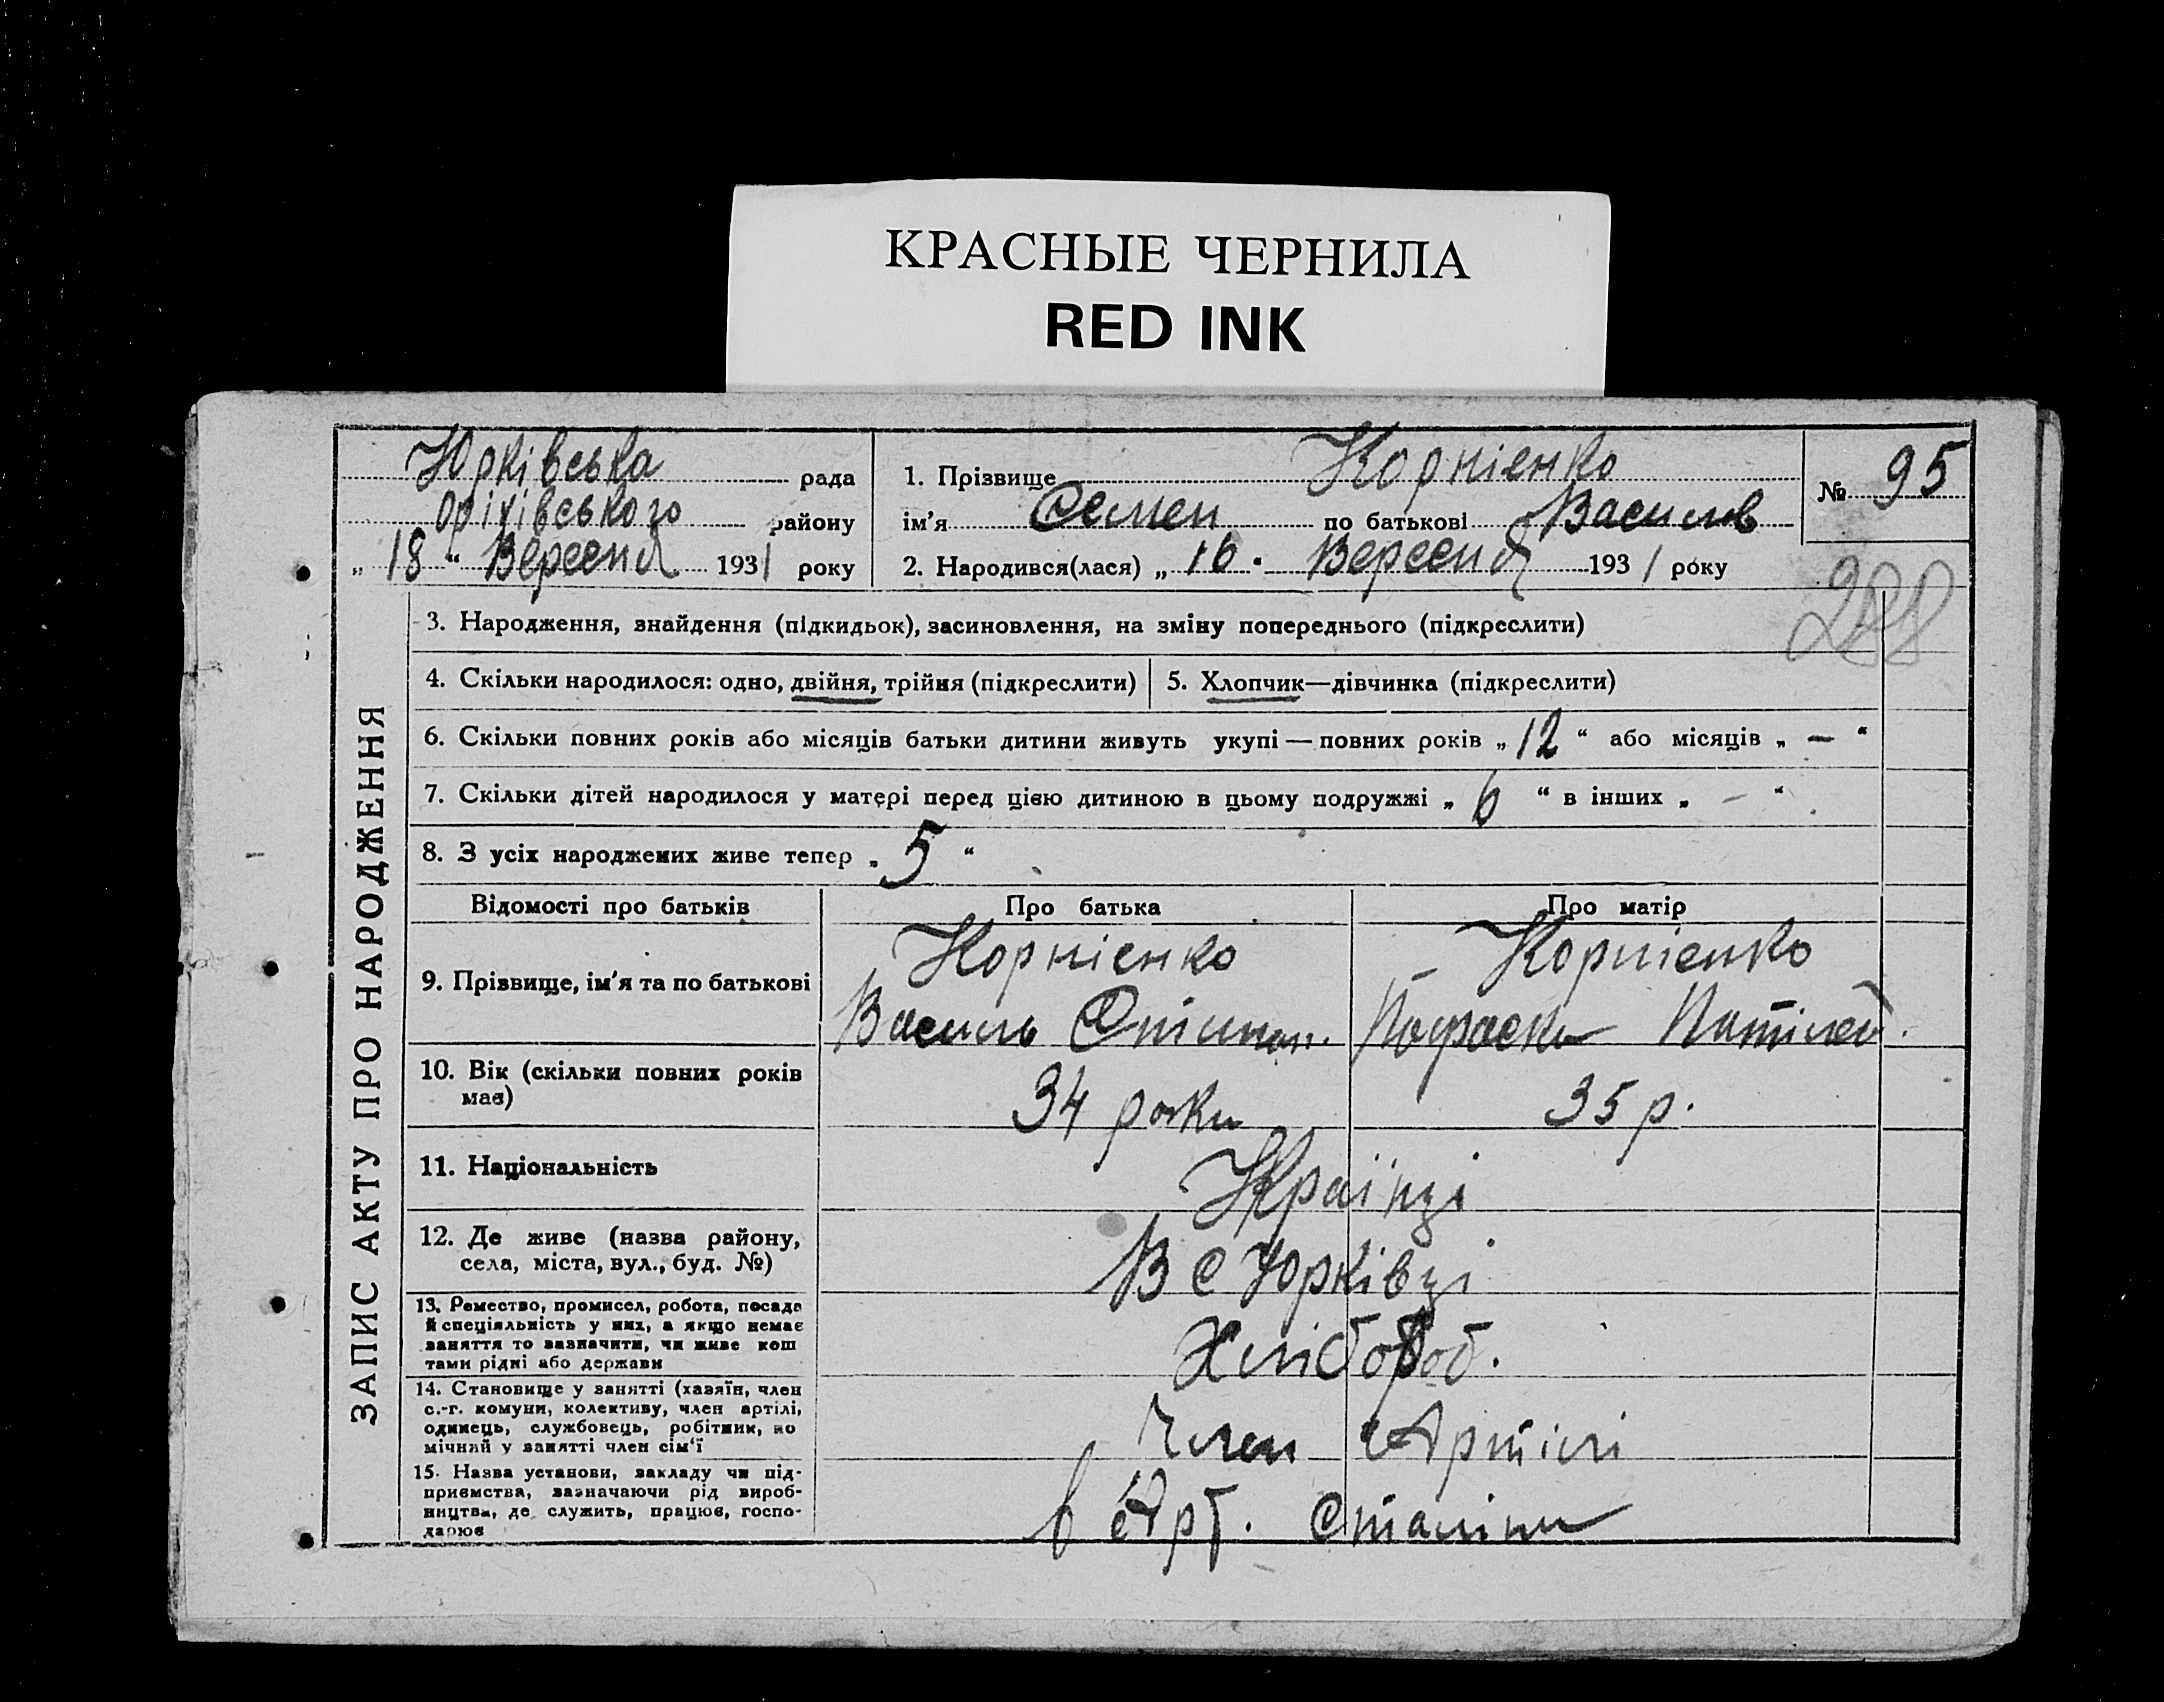 КРАСНЫЕ ЧЕРНИЛА
RED INK
ЗАПИС АКТУ ПРО НАРОДЖЕННЯ
Юрківська рада
Оріхівського району
„ 18 “ Вересня 1931 року
1. Прізвище Корнієнко
ім'я Семен по батькові Василів
2. Народився(лася) „ 16 “ Вересня 1931 року
№ 95
288
3. Народження, знайдення (підкидьок), засиновлення, на зміну попереднього (підкреслити)
4. Скільки народилося: одно, двійня, трійня (підкреслити)
5. Хлопчик—дівчинка (підкреслити)
6. Скільки повних років або місяців батьки дитини живуть укупі — повних років „ 12 “ або місяців „ — “
7. Скільки дітей народилося у матері перед цією дитиною в цьому подружжі „ 6 “ в інших „ — “
8. З усіх народжених живе тепер „ 5 “
Відомості про батьків
Про батька
Про матір
9. Прізвище, ім'я та по батькові
Корнієнко
Василь
Корнієнко
10. Вік (скільки повних років
має)
34 роки
35 р.
11. Національність
Країнці
12. Де живе (назва району,
села, міста, вул., буд. №)
В с Юрківці
13. Ремество, промисел, робота, посада
й спеціяльність у них, а якщо немає
заняття то зазначити, чи живе кош
тами рідні або держави
Хлібороб.
14. Становище у занятті (хазяїн, член
с.-г. комуни, колективу, член артілі,
одинець, службовець, робітник, по
мічний у занятті член сім'ї
Член Артілі
15. Назва установи, закладу чи під-
приємства, зазначаючи рід вироб-
ництва, де служить, працює, госпо-
дарює
в Арт. Сталіни